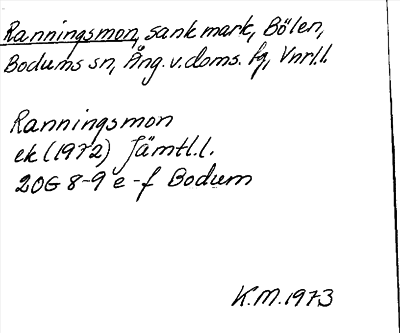 Ranningsmon, sank mark, Bölen,
Bodums sn, Ång. v. doms. fg, Vnrl.l.
Ranningsmon
ek (1972) Jämtl.l.
20G 8-9 e-f Bodum
K.M. 1973